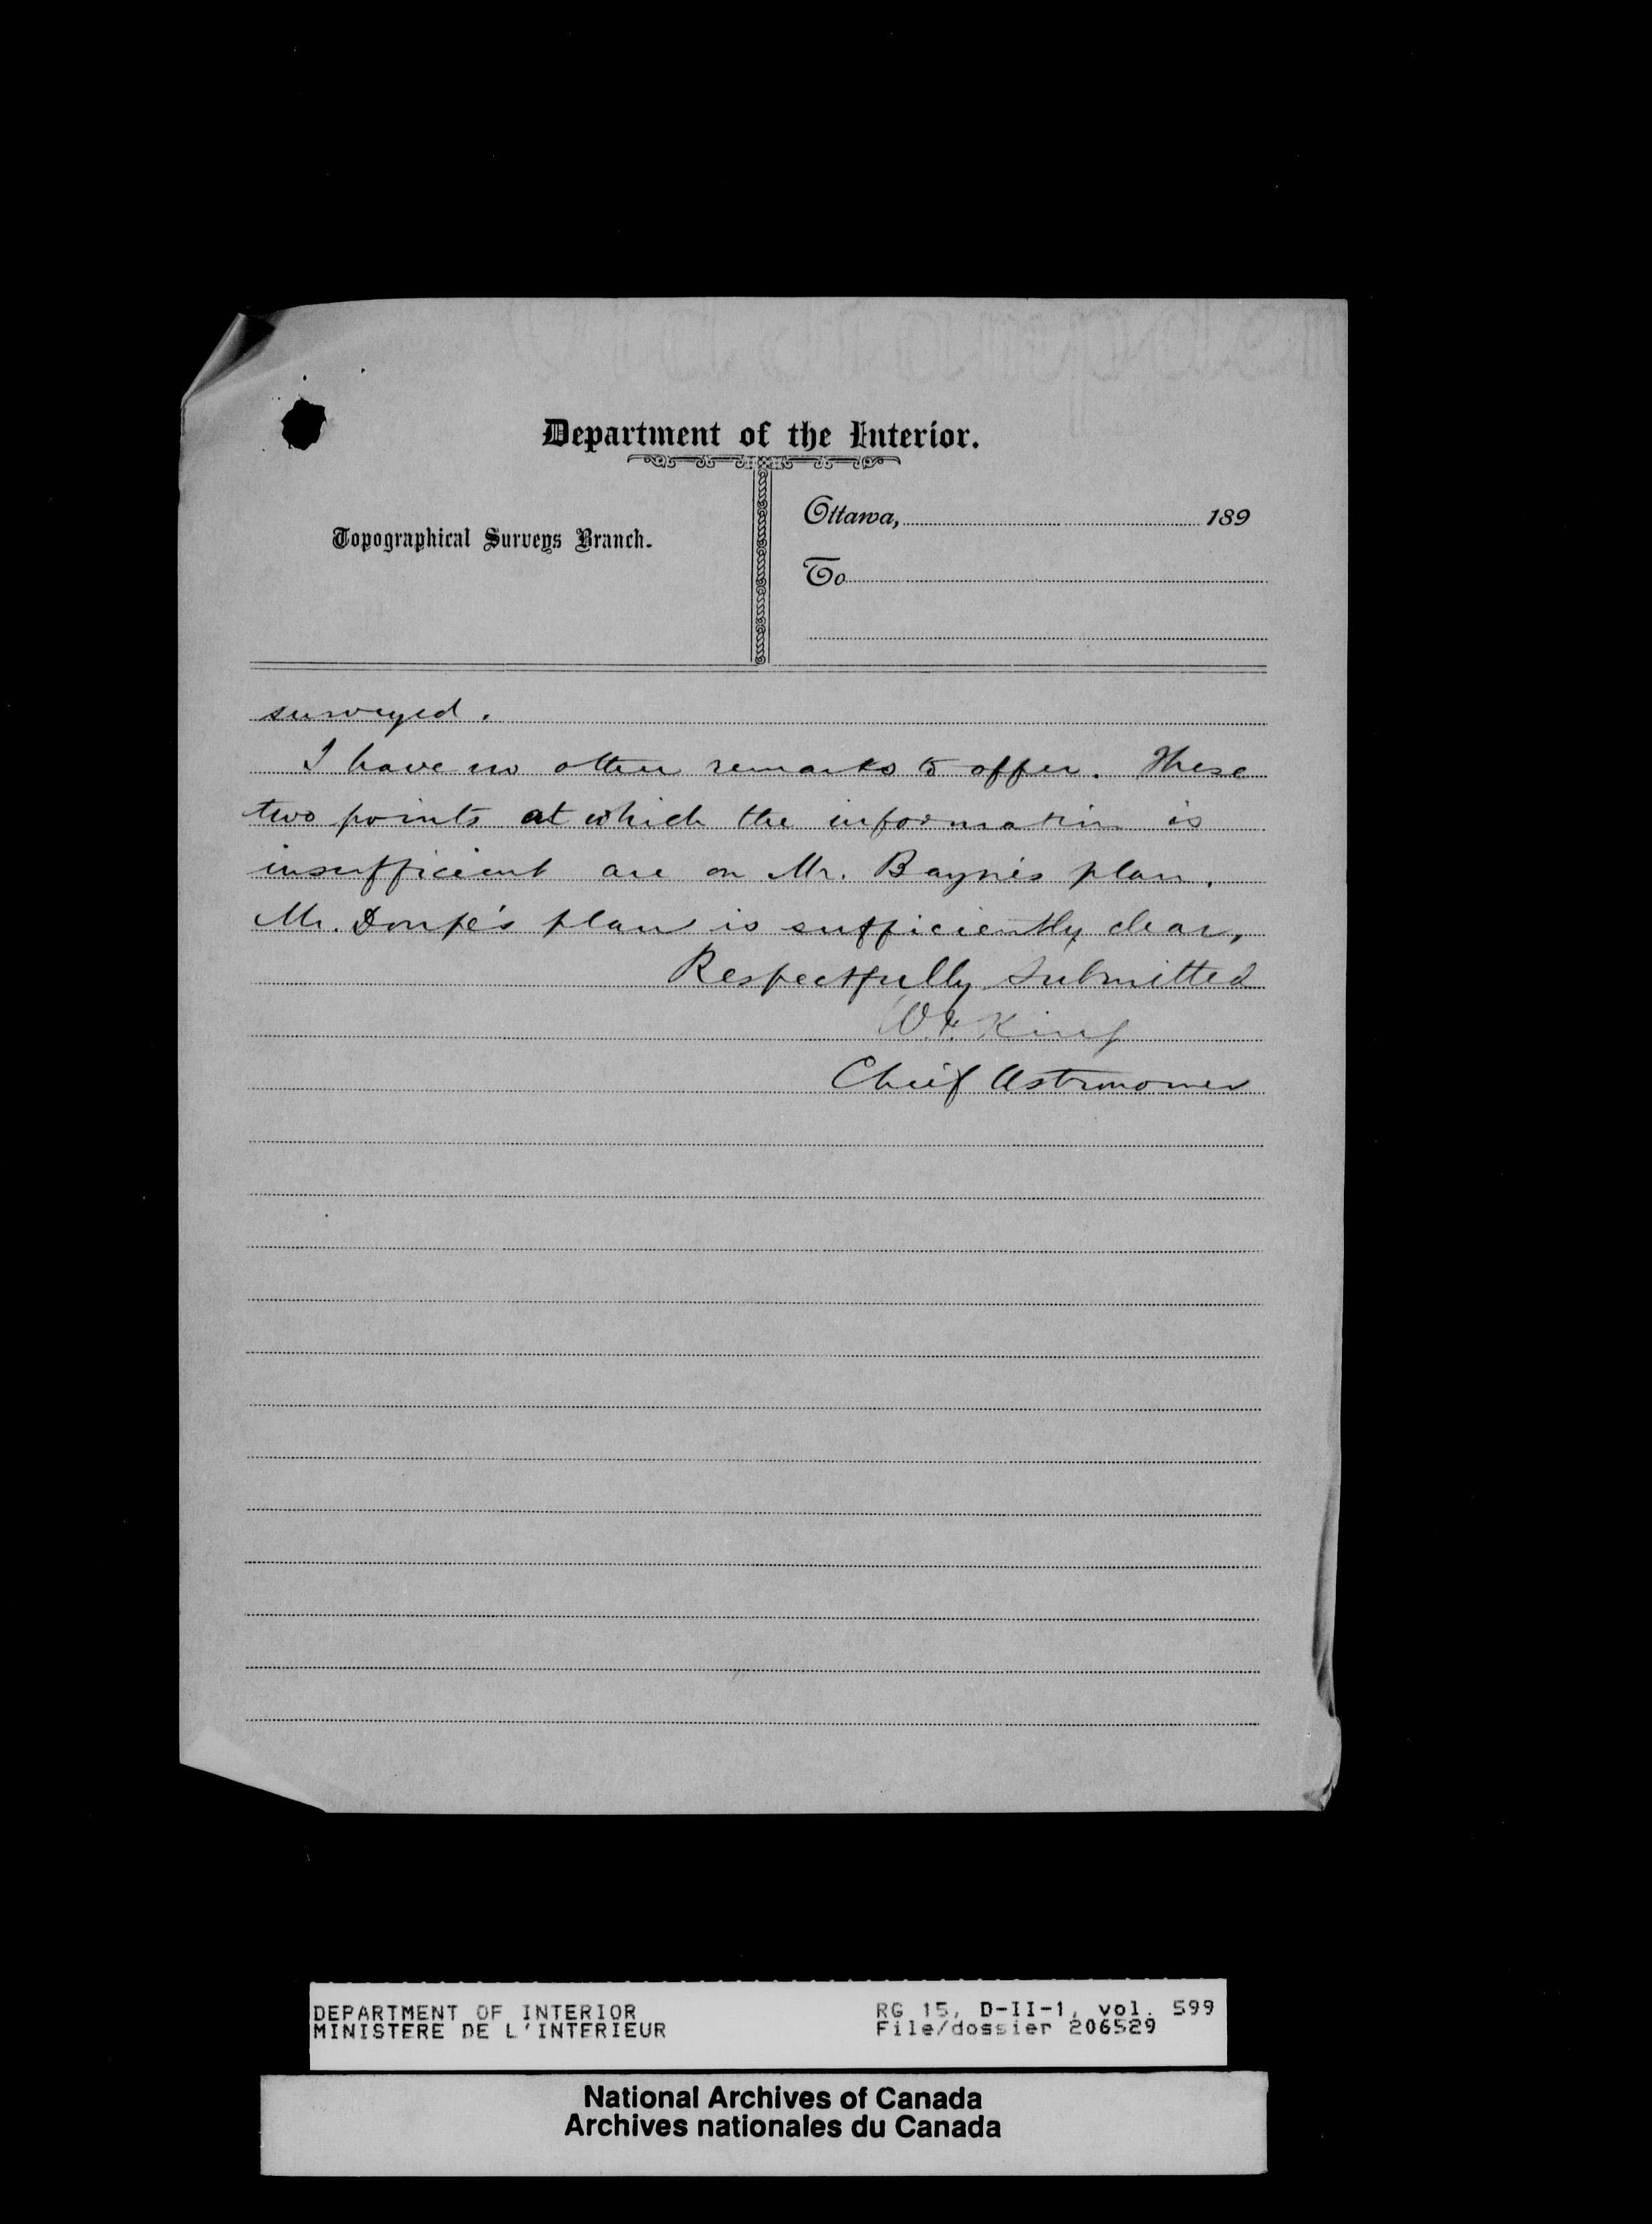 Department of the Interior.
Topographical Surveys Branch.
Ottawa, 189
To
surveyed.
I have no other remarks to offer. These
two points at which the information is
insufficient are on Mr. Bayne's plan.
Mr. Doupe's plan is sufficiently clear,
Respectfully submitted
W.F. King
Chief Astronomer
DEPARTMENT OF INTERIOR
MINISTERE DE L'INTERIEUR
RG 15, D-II-1, vol. 599
File/dossier 206529
National Archives of Canada
Archives nationales du Canada